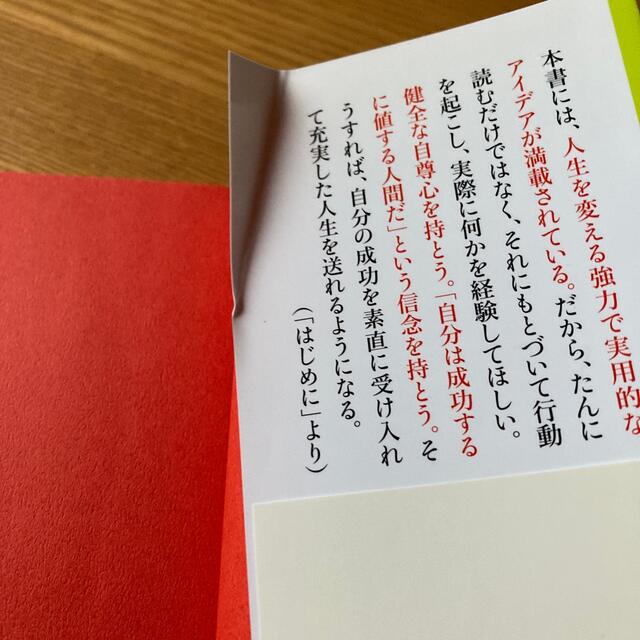 本書には、人生を変える強力で実用的な
アイデアが満載されている。だから、たんに
読むだけではなく、それにもとづいて行動
を起こし、実際に何かを経験してほしい。
健全な自尊心を持とう。「自分は成功する
に値する人間だ」という信念を持とう。そ
うすれば、自分の成功を素直に受け入れ
て充実した人生を送れるようになる。
(「はじめに」より)